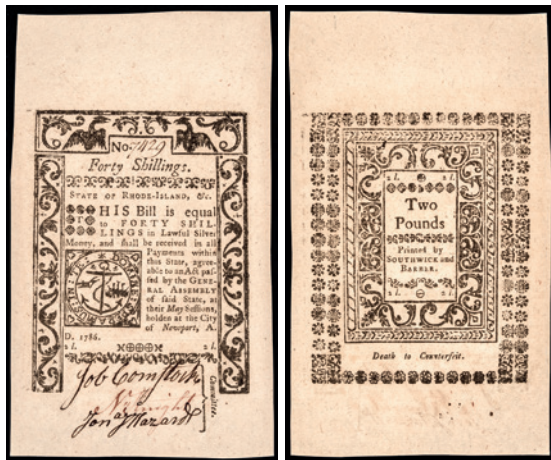 No. 7429
Forty Shillings.
STATE OF RHODE-ISLAND, &c.
HIS Bill is equal
to FORTY SHIL-
LINGS in Lawful Silver
Money, and shall be received in all
Payments within
this State, agree-
able to an Act pas-
sed by the GENE-
RAL ASSEMBLY
of said State, at
their May Sessions,
holden at the City
of Newport, A.
D. 1786.
2 l. 2 l.
Job Comstock
Jona Hazard
Committee.
2 l. 2 l.
Two
Pounds
Printed by
SOUTHWICK and
BARBER.
2 l. 2 l.
Death to Counterfeit.